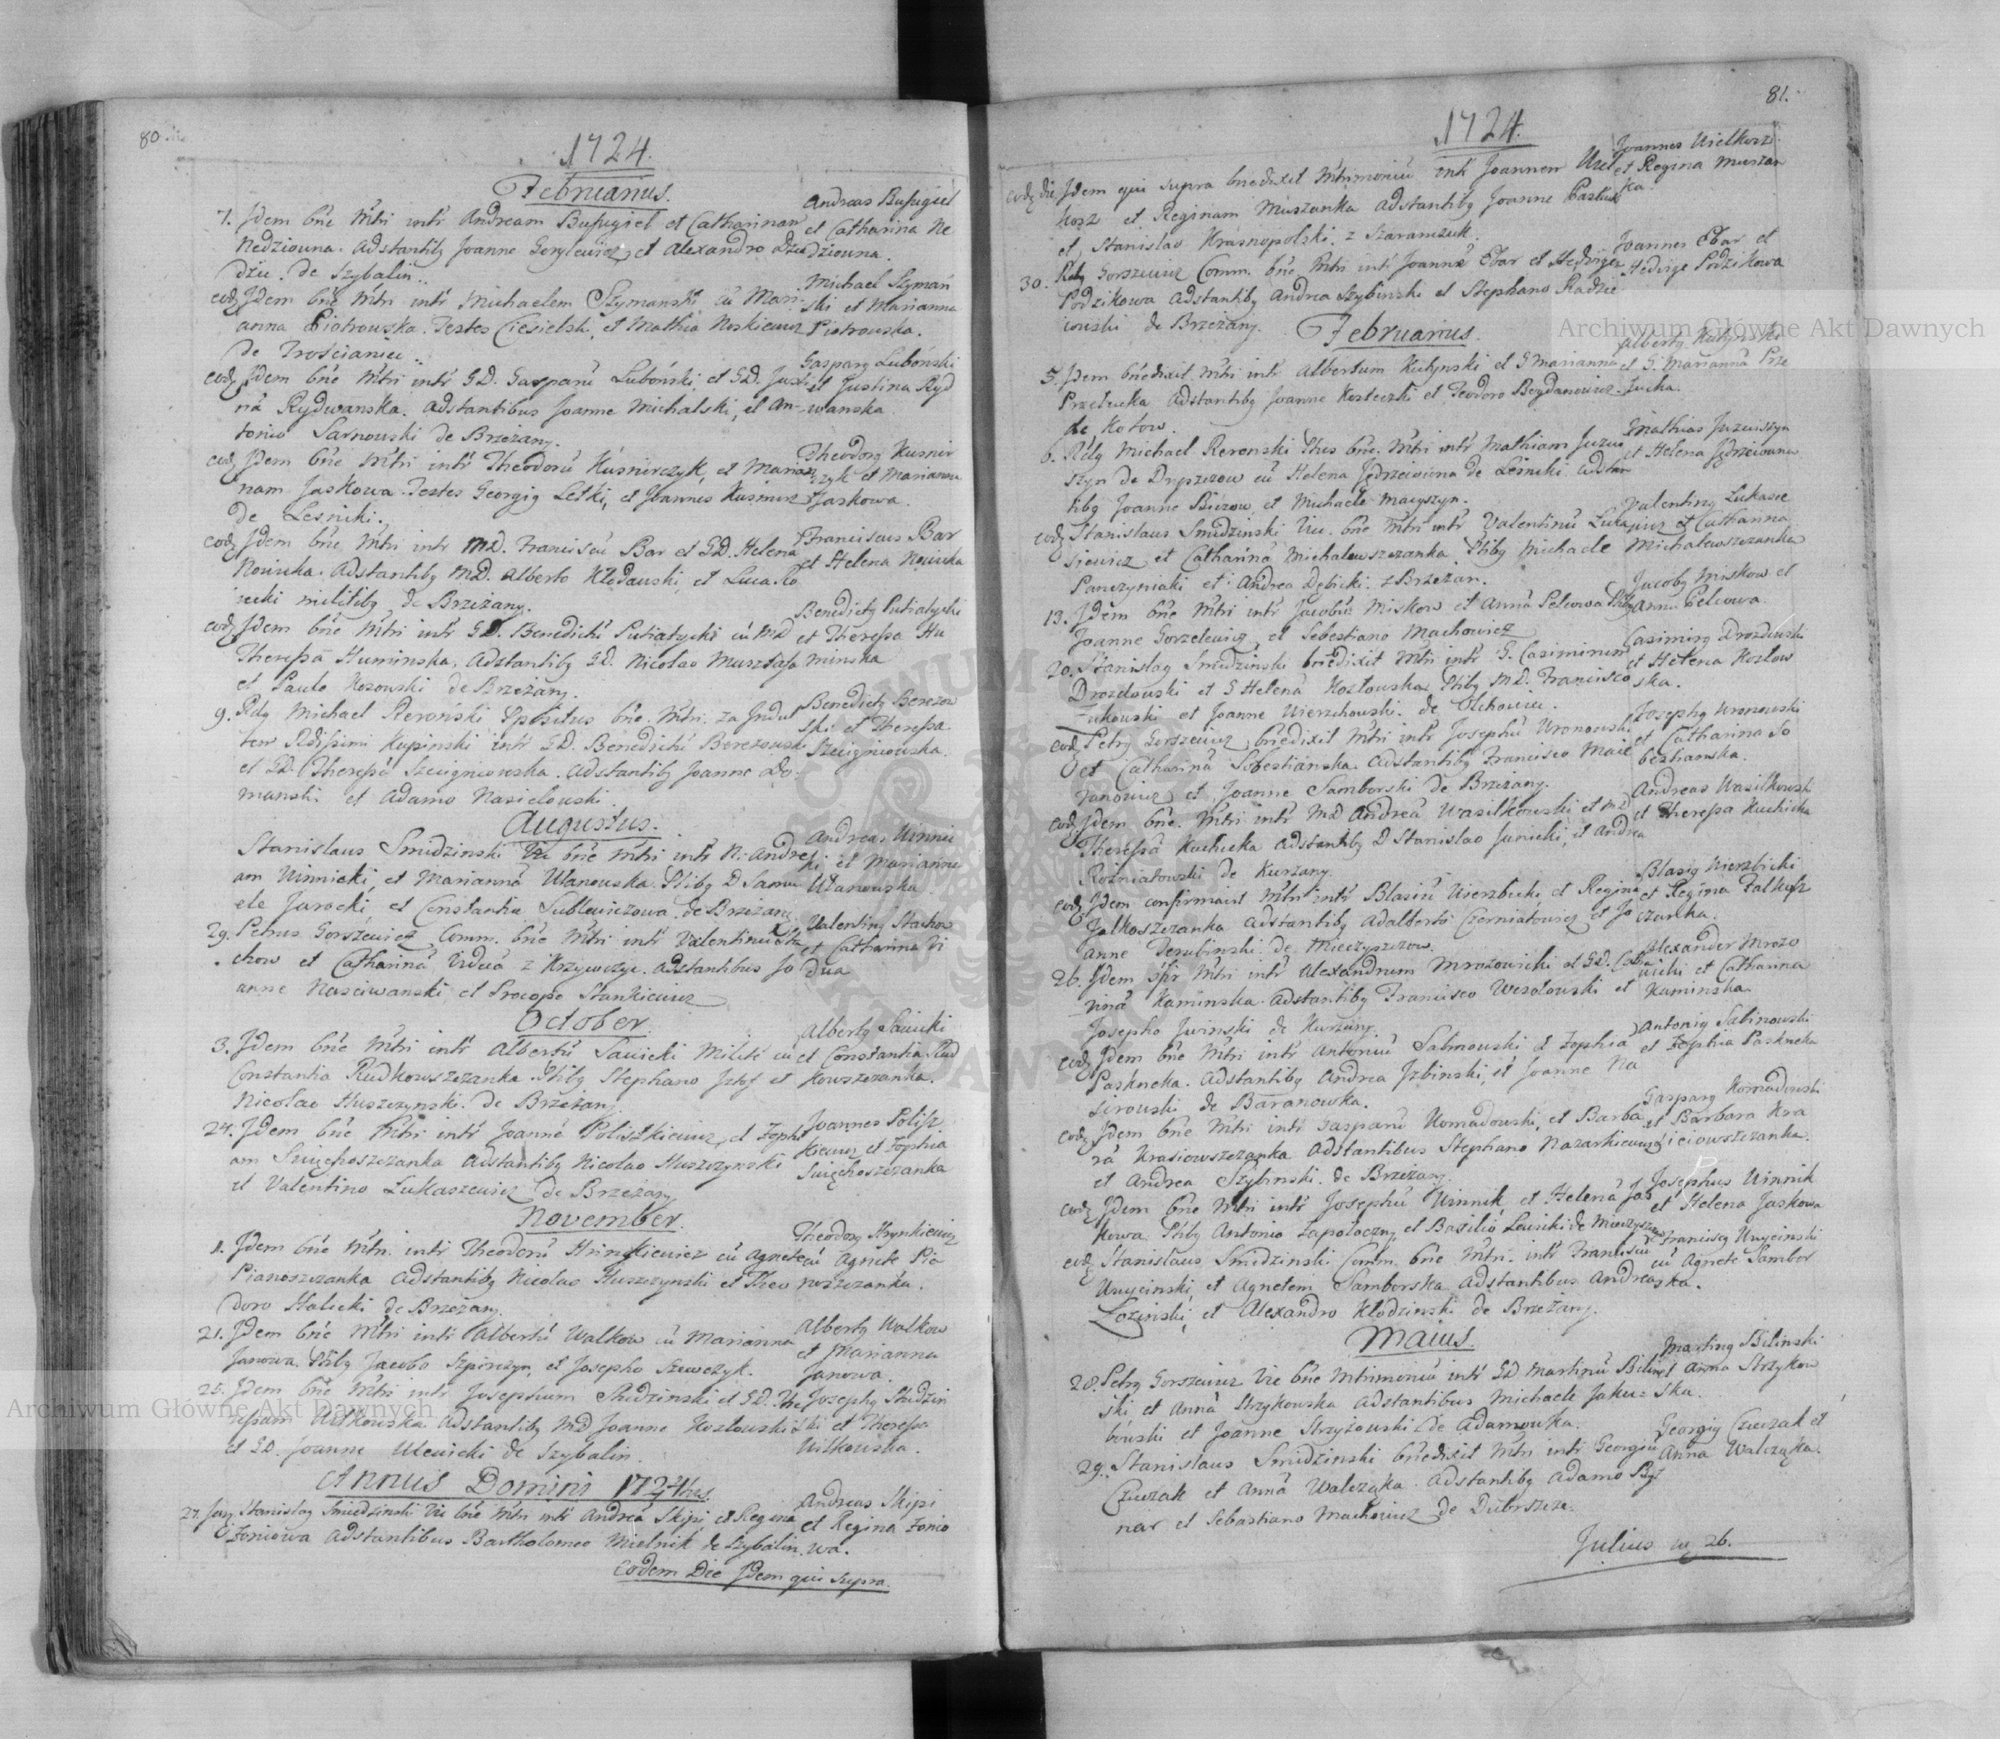 80.
1724.
Februarius.
7. Jdem bñe Mtri intr Andream Busugiel et Catharinam
Nedziowna. Adstantibg Joanne Gorylewicz et Alexandro
de Szybalin.
Andreas Busugiel
et Catharina Ne
dziowna.
eodg Jdem bñe Mtri intr Michaelem Szymanski cũ Mari
anna Piotrowska. Testes Ciesielski, et Mathia Noskiewicz
de Trościaniec.
Michael Szymań
ski et Marianna
Piotrowska.
eodg Jdem bñe Mtri intr GD. Gasparũ Luboński, et GD. Justi
nã Rydwanska. Adstantibus Joanne Michalski, et An-
tonio Sarnowski de Brzeżany.
Gasparg Luboński
et Justina Ryd
wanska.
eodg Jdem bñe Mtri intr Theodorũ Kusnirczyk, et Marian
nam Jaskowa. Testes Georgig Letki, et Joannes Kusnierz
de Lesniki.
Theodorg Kusnir
czyk et Marianna
Jaskowa.
eodg Jdem bñe Mtri intr MD. Franciscũ Bar et GD. Helena
Nowicka. Adstantibg MD. Alberto Kłodawski, et Luca Ro
militibg de Brzeżany.
Franciscus Bar
et Helena Nowicka
eodg Jdem bñe Mtri intr GD. Benedictũ Putiatycki cũ MD
Theressã Huminska. Adstantibg GD. Nicolao Musztafa
et Paulo Kozowski de Brzeżany.
Benedictg Putiatycki
et Theressa Hu
minska
9. Rdg Michael Reronski Spositus bñe. Mtri. za Jndul
tem Rdissimi Kupinski intr GD. Benedictũ Berezowski
et GD. Theressã Szczigniowska. Adstantibg Joanne Do-
manski et Adamo Nasielowski.
Benedictg Berezow
ski et Theressa
Szczigniowska.
Augustus.
Stanislaus Smidzinski Vic bñe Mtri intr N. Andre
am Winnicki, et Mariannã Ulanowska. Ptibg D Samu
ele Jarocki, et Constantia Sublewiczowa de Brzeżany
Andreas Winnic
ki et Marianna
Ulanowska
29. Petrus Gorszewicz Comm. bñe Mtri intr Valentinum Sta
chow et Catharinã Viduã z Krzywczyc. Adstantibus Jo
anne Nasciwanski, et Procopo Stankiewicz
Valenting Stachow
et Catharina Vi
dua
October.
3. Jdem bñe Mtri intr Albertũ Sawicki Milite cũ
Constantia Rudkowszczanka. Ptibg Stephano et
Nicolao Huszczynski. de Brzeżany.
Albertg Sawicki
et Constantia Rud
kowszczanka.
24. Jdem bñe Mtri intr Joannẽ Poliszkiewicz, et Zophi
am Swięchoszczanka Adstantibg Nicolao Huszczynski
et Valentino Lukaszewicz de Brzeżany
Joannes Polisz
kiewicz et Zophia
Swięchoszczanka
November.
1. Jdem bñe Mtri. intr Theodorũ Hrinkiewicz cũ Agnete
Pianoszczanka Adstantibg Nicolao Huszczynski et Theo
doro Halecki de Brzeżany.
Theodorg Hrynkiewicz
cũ Agnete Pia
noszczanka.
21. Jdem bñe Mtri intr Albertũ Walkow cũ Marianna
Janowa. Ptibg Jacobo Szpirczyn, et Josepho Szewczyk.
Albertg Walkow
et Marianna
Janowa.
25. Jdem bñe Mtri intr Josephum Studzinski et GD. The
ressam Witkowska Adstantibg MD Joanne Kozlowski
et GD. Joanne Ulewicki de Szybalin.
Josephg Studzin
ski et Theressa
Witkowska.
Annus Domini 1724tus.
27. Jan. Stanislag Smidzinski Vic bñe Mtri intr Andreã Skipi, et Regina
Foniowa Adstantibus Bartholomeo Mielnik de Szybalin.
Andreas Skipi
et Regina Fonio
wa.
Eodem Die Jdem qui supra.
81.
1724.
eodg die Jdem qui supra bnedixit Mtrimoniũ intr Joannem Wiel
kosz et Reginam Muszanka Adstantibg Joanne Pastuch
et Stanislao Krasnopolski. z Szaranczuk.
Joannes Wielkosz
et Regina Muszan
ka.
30. Petrg Gorszewicz Comm. bñe Mtri intr Joannẽ Char et Hedvige
Podzikowa Adstantibg Andrea Szybinski et Stephano Radzie
iowski de Brzeżany.
Joannes Char et
Hedvige Podzikowa
Februarius.
5. Jdem bnedixit Mtri intr Albertum Kutynski et G Marianna
Przetucka Adstantibg Joanne Kosteczki et Teodoro Bogdanowicz.
de Kotow.
Albertg Kutynski
et G. Marianna Prze
tucka.
6. Rdg Michael Reronski Ptus bñe. Mtri intr Mathiam Juzwi
szyn de Dryszczow cũ Helena Jędrzeiowna de Leśniki Adstan
tibg Joanne et Michaele Matyszyn.
Mathias Juzwiszyn
et Helena Jędrzeiowna
eodg Stanislaus Smidzinski Vic. bñe Mtri intr Valentinũ Luka
siewicz et Catharinã Michalewszczanka Ptibg Michaele
Panczyniaki et Andrea Dębicki. z Brzeżan.
Valenting Lukasie
wicz et Catharina
Michalewszczanka
13. Jdem bñe Mtri intr Jacobũ Miskow et Annã Pelcowa Ptibg
Joanne Gorzelewicz et Sebestiano Machowicz
Jacobg Miskow et
Anna Pelcowa.
20. Stanislag Smidzinski bnedixit Mtri intr G. Casimirum
Drozdowski et G Helenã Kozlowska Ptibg MD. Francisco
Zukowski et Joanne Wierzchowski. de Olchowiec.
Casimirg Drozdowski
et Helena Kozlow
ska.
eodg Petrg Gorszewicz bñedixit Mtri intr Josephũ Wronowski
et Catharinã Sobestianska. Adstantibg Francisco Maie
ranowicz et Joanne Samborski de Brzeżany.
Josephg Wronowski
et Catharina So
bestianska.
eodg Jdem bñe. Mtri intr MD Andreã Wasilkowski et MD
Theressã Kuchicka Adstantibg D Stanislao Junicki, et Andrea
Rozniatowski de Kurzany.
Andreas Wasilkowski
et Theressa Kuchicka
eodg Jdem confirmavit Mtri intr Blasiũ Wierzbicki et Regina
Falkoszczanka Adstantibg Adalberto Czerniatowicz et Jo
anne Derubinski de Mieczyszczow.
Blasig Wierzbicki
et Regina Falkosz
czanka.
26. Jdem Mtri intr Alexandrum Mrozowicki et GD. Catha
rinã Kaminska Adstantibg Francisco Wesolowski et
Josepho Jwinski de Kurzany.
Alexander Mrozo
wicki et Catharina
Kaminska
eodg Jdem bñe Mtri intr Antoniũ Salmowski et Zophia
Paskucka. Adstantibg Andrea Jzbinski, et Joanne Na
sirowski de Baranowka.
Antonig Salinowski
et Zophia Paskucka
eodg Jdem bñe Mtri intr Gasparũ Komadowski, et Barba
rã Krasiowszczanka Adstantibus Stephano Nazarkiewicz
et Andrea Szybinski. de Brzeżany.
Gasparg Komadowski
et Barbara Kra
siowszczanka.
eodg Jdem bñe Mtri intr Josephũ Winnik, et Helenã Jas
kowa Ptibg Antonio Zapotoczny et Basilio Lewicki de Mieczyszczow
Josephus Winnik
et Helena Jaskowa
eodg Stanislaus Smidzinski Comm. bñe Mtri. intr Franciscũ
Uruycinski, et Agnetem Samborska Adstantibus Andrea
Lozinski, et Alexandro Klodzinski de Brzeżany.
Franciscg Uruycinski
cũ Agnete Sambor
ska.
Maius.
28. Petrg Gorszewicz Vic bñe Mtrimoniũ intr GD Martinũ Bilin
ski et Annã Strzykowska Adstantibus Michaele Jaku=
bówski et Joanne Strzyżowski de Adamowka.
Marting Bilinski
et Anna Strzykow
ska.
29. Stanislaus Smidzinski bñedixit Mtri intr Georgiũ
Czuczak et Annã Walcząka. Adstantibg Adamo
nar et Sebastiano Machowicz de Dubrszcze.
Georgig Czuczak et
Anna Walcząka.
Julius 26.
Archiwum Główne Akt Dawnych
Archiwum Główne Akt Dawnych